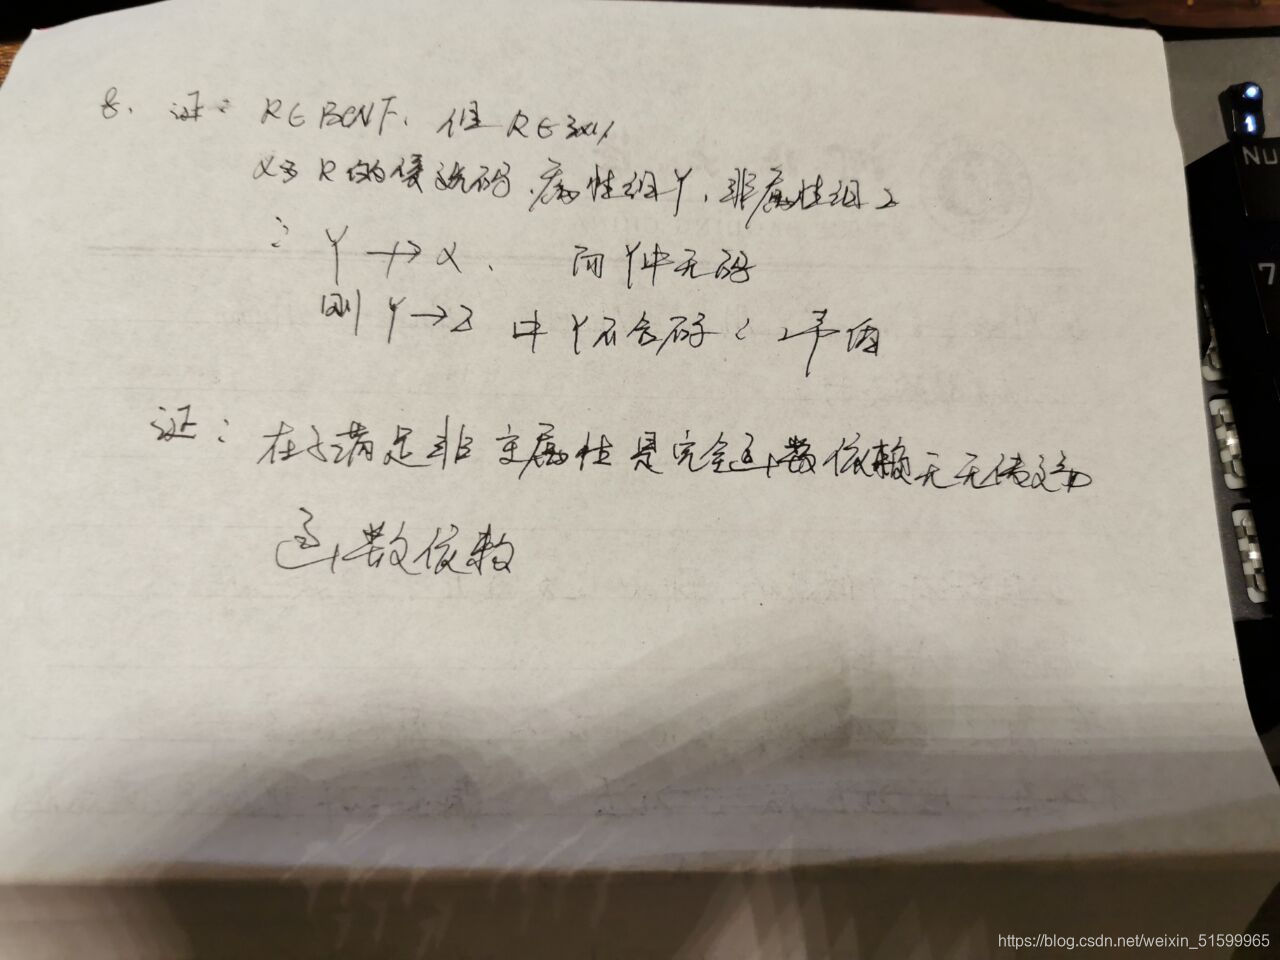 8. 证: R∈BCNF, 但 R∈3NF
X为R的候选码,属性组Y,非属性组Z
∴ Y↛X, 而Y中无码
则 Y→Z 中Y不含码 矛盾
证: 在 满足非主属性是完全函数依赖 无传递
函数依赖
1
Nu
7
https://blog.csdn.net/weixin_51599965